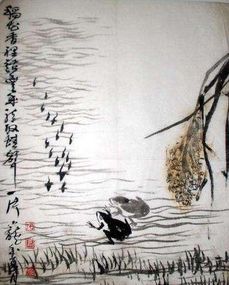 稻花香裡說豐年聽取蛙聲一片